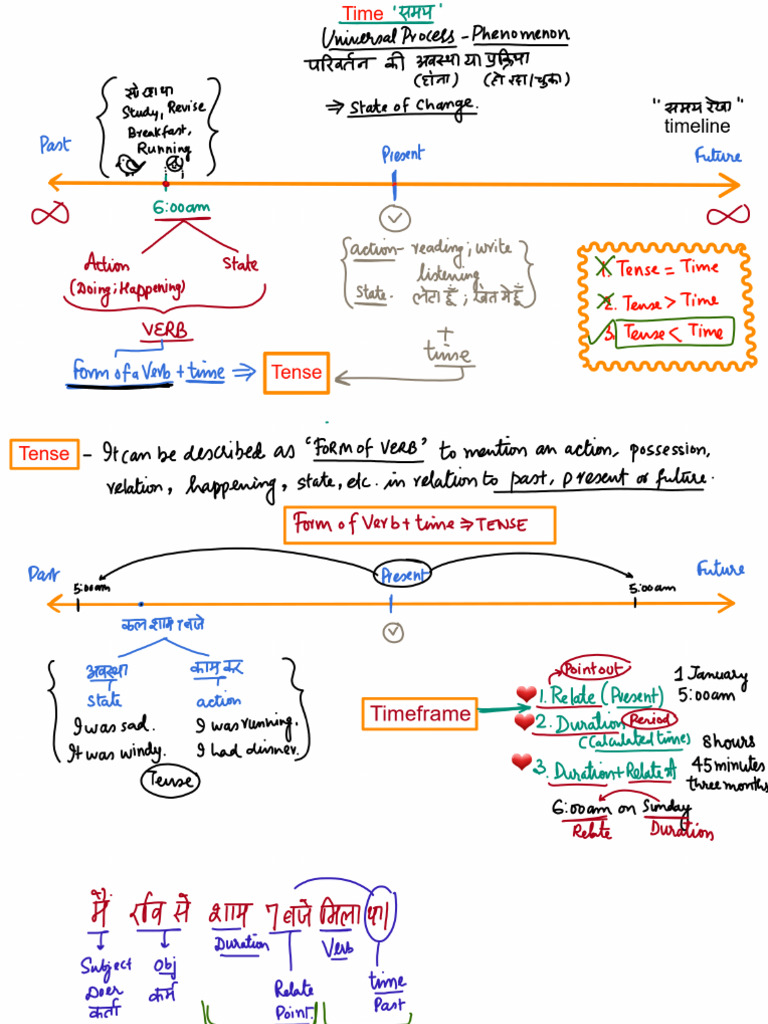 Time 'समय'
Universal Process - Phenomenon
परिवर्तन की अवस्था या प्रक्रिया
(होना) (हो रहा/चुका)
⇒ State of Change.
"समय रेखा"
timeline
Study, Revise
Breakfast,
Running
Past
Present
Future
6:00am
∞
∞
Action
State
(Doing; Happening)
VERB
Form of a Verb + time ⇒ Tense
action - reading; write
listening
state. लेटा हूँ; खेत में हूँ
+
time
1. Tense = Time
2. Tense > Time
3. Tense < Time
Tense - It can be described as "FORM OF VERB" to mention an action, possession,
relation, happening, state, etc. in relation to past, present or future.
Form of Verb + time ⇒ TENSE
Past
Present
Future
5:00am
5:00am
कल शाम 7 बजे
अवस्था
काम कर
state
action
I was sad.
I was running.
It was windy.
I had dinner.
Tense
Timeframe
Point out
1. Relate (Present)
1 January
5:00am
2. Duration Period
(Calculated time)
8 hours
45 minutes
three months
3. Duration + Relate
6:00am on Sunday
Relate
Duration
मैं रवि से शाम 7 बजे मिला था।
Duration
Verb
Subject
Doer
कर्ता
Obj
कर्म
Relate
Point.
time
Past